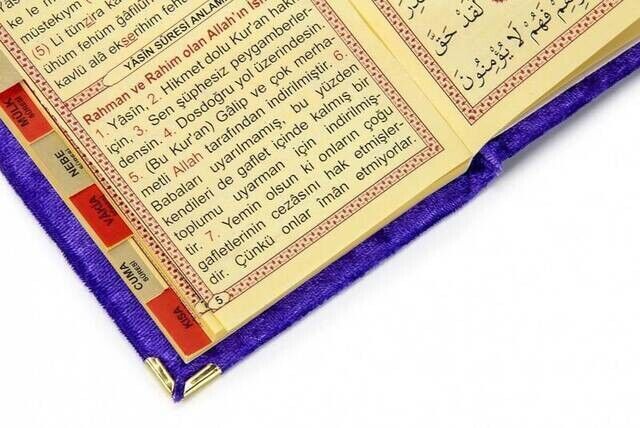 ke le m
müstekıym
(5) Li tünzira k
ühüm fehüm ğâfilûn
kavlü alâ ekserihim fehüm
YASİN SÛRESİ ANLAMI
Rahman ve Rahim olan Allah'ın is
1. Yâsîn, 2. Hikmet dolu Kur'an hakkı
için, 3. Sen şüphesiz peygamberler-
densin. 4. Dosdoğru yol üzerindesin.
5. (Bu Kur'an) Gâlip ve çok merha-
metli Allah tarafından indirilmiştir. 6.
Babaları uyarılmamış, bu yüzden
kendileri de gaflet içinde kalmış bir
toplumu uyarman için indirilmiş-
tir. 7. Yemin olsun ki onların çoğu
gafletlerinin cezâsını hak etmişler-
dir. Çünkü onlar îmân etmiyorlar.
5
لَقَدْ حَقَّ
فَهُمْ لَا يُؤْمِنُونَ
MÜLK
SÛRESİ
NEBE
VAKIA
CUMA
SÛRESİ
KISA